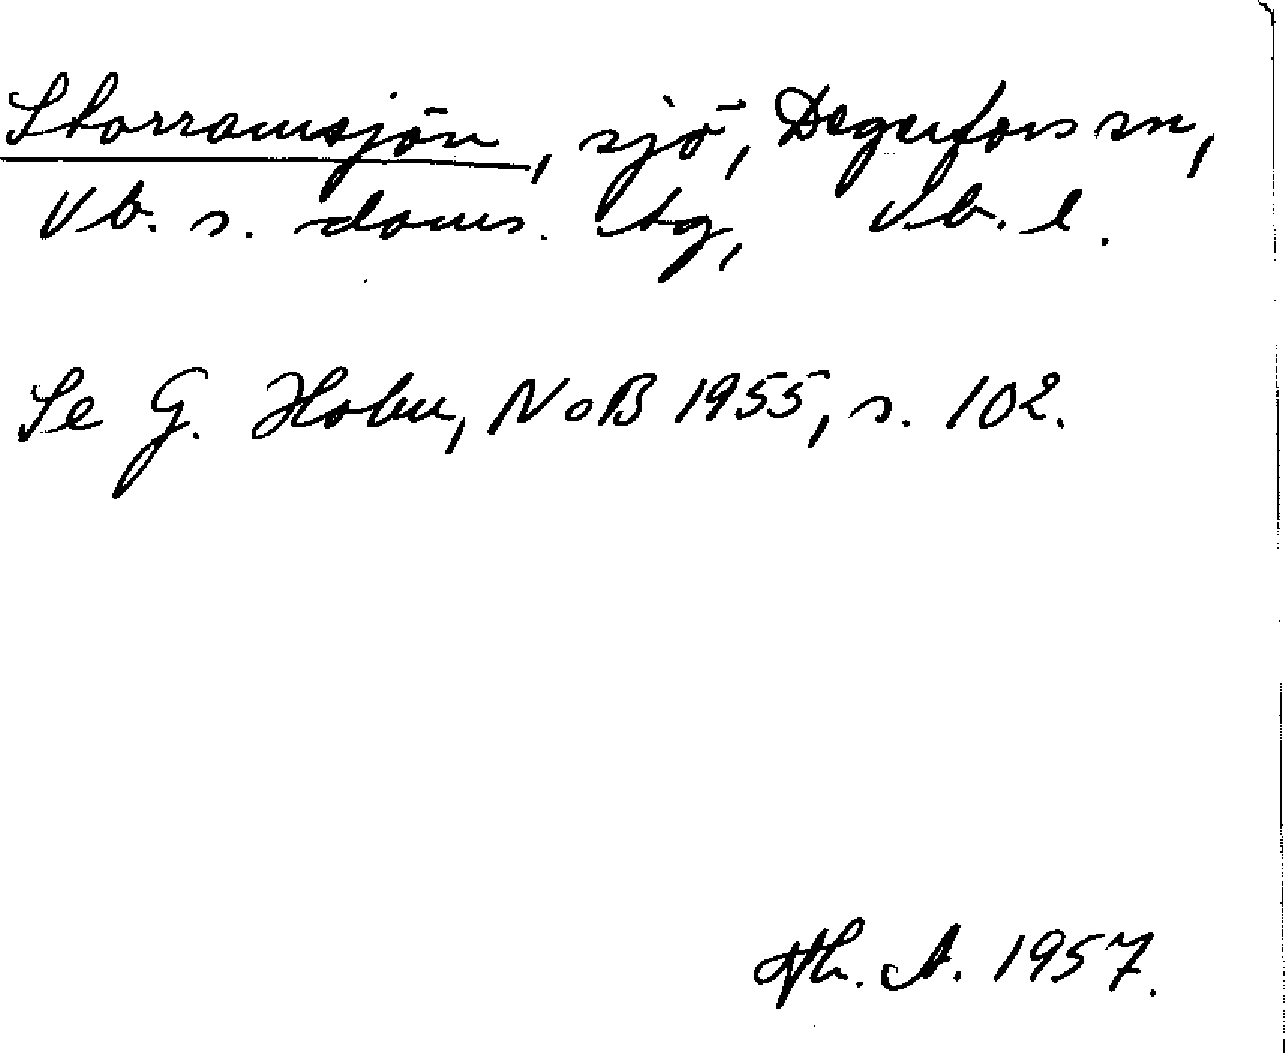 Storramsjön, sjö, Degerfors sn,
Vb. s. doms. tg, Vb. l.
Se G. Holm, NoB 1955, s. 102.
Th. A. 1957.